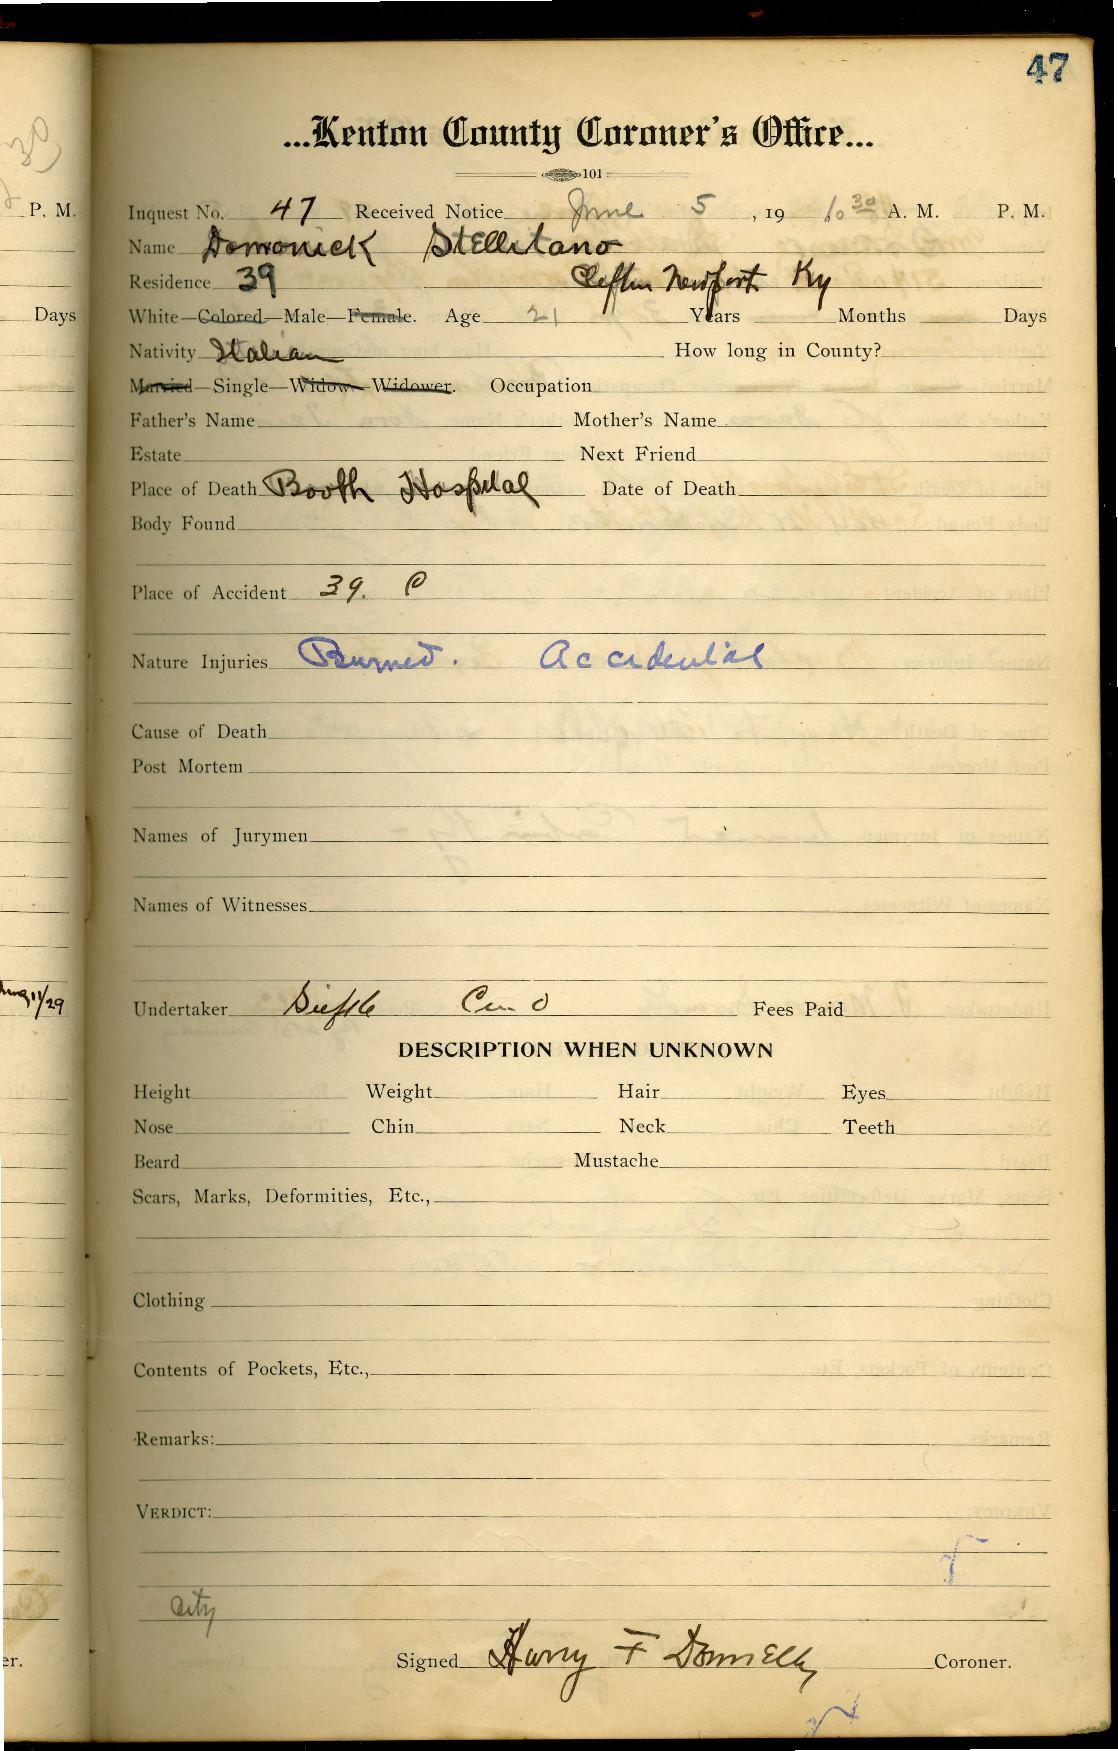 47
...Kenton County Coroner's Office...
101
P. M.
Inquest No. 47 Received Notice June 5, 19 10 30 A. M. P. M.
Name Domonick Stellitano
Residence 39 Clifton Newport Ky
Days
White—Colored—Male—Female. Age 21 Years Months Days
Nativity Italian How long in County?
Married—Single—Widow—Widower. Occupation
Father's Name Mother's Name
Estate Next Friend
Place of Death Booth Hospital Date of Death
Body Found
Place of Accident 39. C
Nature Injuries Burned. Accidential
Cause of Death
Post Mortem
Names of Jurymen
Names of Witnesses
11/29
Undertaker Cin O Fees Paid
DESCRIPTION WHEN UNKNOWN
Height Weight Hair Eyes
Nose Chin Neck Teeth
Beard Mustache
Scars, Marks, Deformities, Etc.,
Clothing
Contents of Pockets, Etc.,
Remarks:
VERDICT:
City
er.
Signed Harry F Donnelly Coroner.